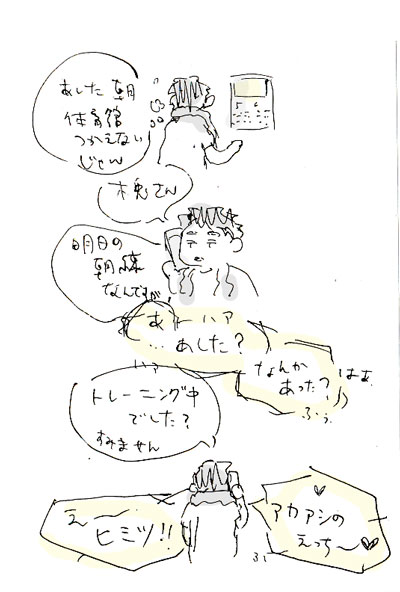 あした 朝
体育館
つかえない
じゃん
木兎さん
明日の
朝練
なんですが
あーハァ
…あした?
ハァ
なんか
あった?
はぁ
ふぅ
トレーニング中
でした?
すみません
えー
ヒミツ!!
アカアシの
えっち〜